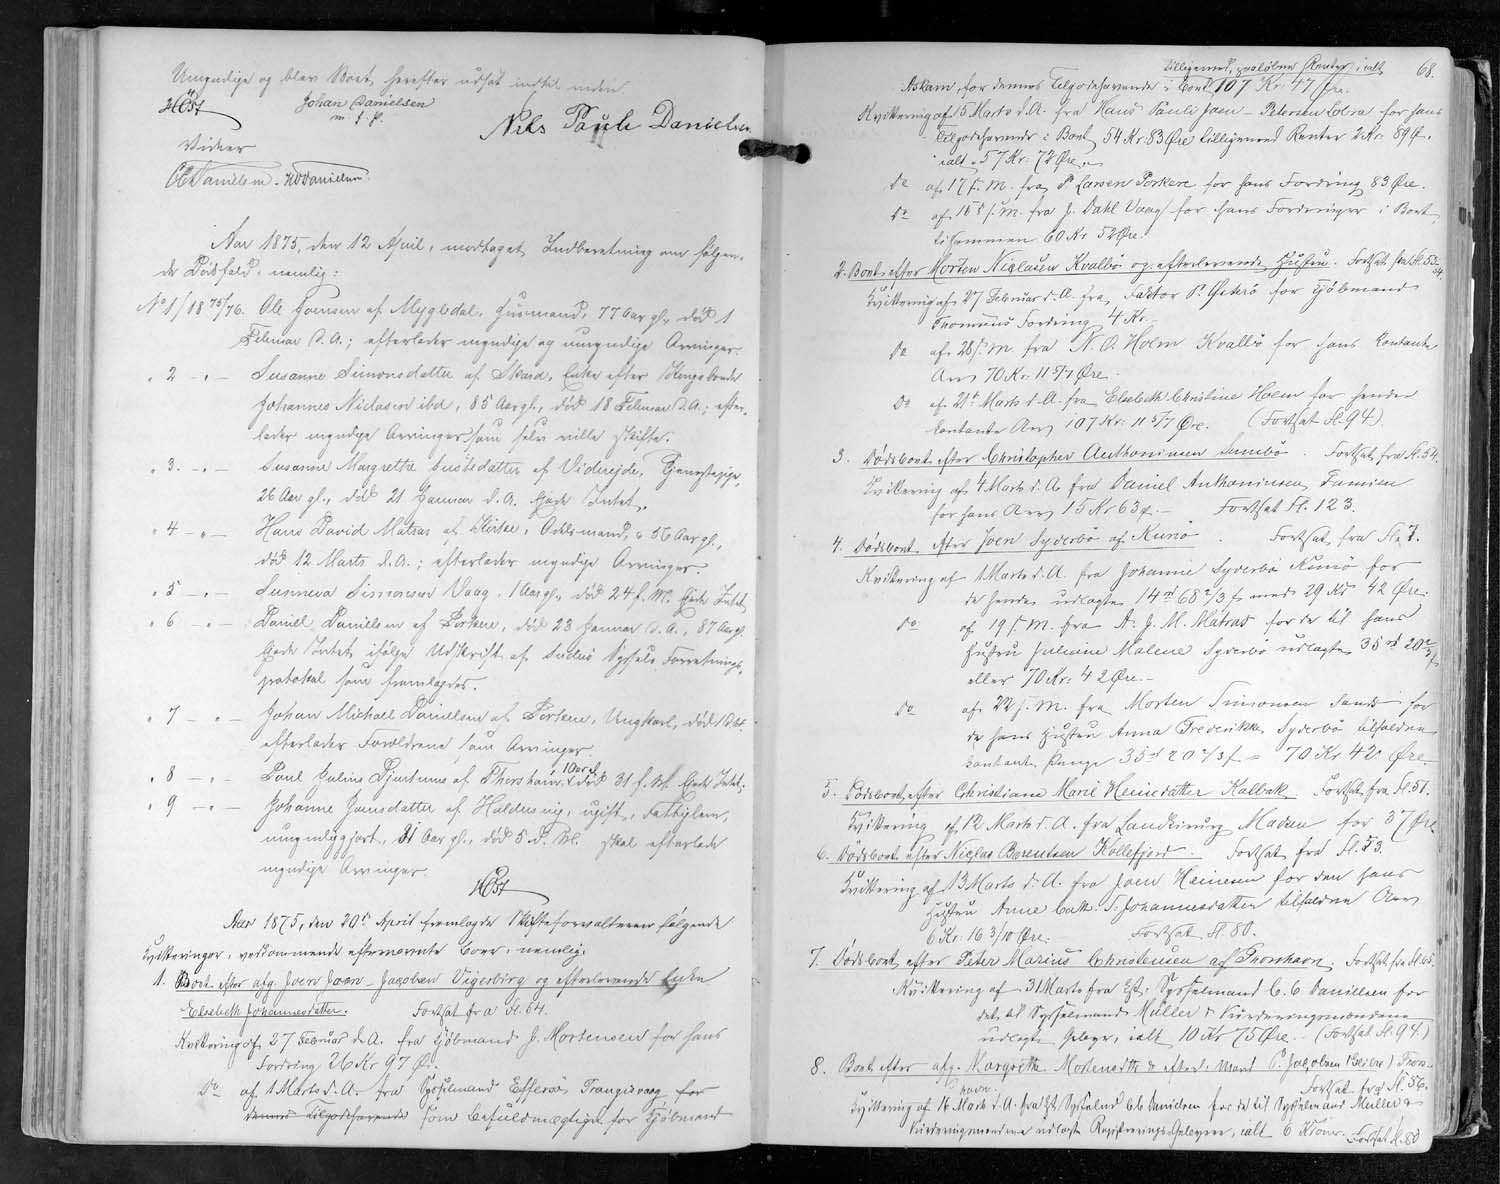 Umyndige og blev Boet herefter udsat indtil uiden.
HOst Johan Danielsen
m. f. P.
Nils Pauli Danielsen
Vidner
O Danielsen. HDDanielsen.
Aar 1875, den 12 April, modtaget Indberetning om følgen-
de Dødsfald, nemlig:
No 1/1875/76. Ole Joensen af Mygledal, Huusmand, 77 Aar gl., død 1
Februar d.A.; efterlader myndige og umyndige Arvinger.
" 2 - " - Susanne Simonsdatter af Skard, Enke efter Kongsbonde
Johannes Niclasen ibd, 85 Aar gl., død 18 Februar d.A.; efter-
lader myndige Arvinger som selv ville skifte.
" 3. - " - Susanne Margrethe Justesdatter af Videreide, Tjenestepige,
26 Aar gl., død 21 Januar d.A. Ejede Intet.
" 4 - " - Hans David Matras af Kirke, Odelsmand, 56 Aar gl.,
død 12 Marts d.A.; efterlader myndige Arvinger.
" 5 - " - Sunneva Simonsen Vaag, 1 Aar gl., død 24 f. M. Ejede Intet
" 6 - " - Daniel Danielsen af Porkere, død 23 Januar d.A., 87 Aar gl.
Ejede Intet ifølge Udskrift af Suderø Syssels Forretnings-
protokol som fremlagdes.
" 7 - " - Johan Michael Danielsen af Porkere, Ungkarl, død
efterlader Forældrene som Arvinger
" 8 - " - Poul Julius Djurhuus af Thorshavn, 1 Aar gl. død 31 f. M. Ejede Intet.
" 9 - " - Johanne Joensdatter af Haldersvig, ugift, Fattiglem,
umyndiggjort, 31 Aar gl., død 5 d. M. skal efterlade
myndige Arvinger.
HOst
Aar 1875, den 20de April fremlagde Skifteforvalteren følgende
Kvitteringer, vedkommende efternævnte Boer, nemlig:
1. Boet efter afg. Joen Joen-Jacobsen Vigerbirg og efterlevende Enke
Elsebeth Johannesdatter. Fortsat fra fl. 54.
Kvittering af 27 Februar d.A. fra Kjøbmand J. Mortensen for hans
Fordring 26 Kr 97 Øre.
Do af 1 Marts d.A. fra Sysselmand Effersøe Trangisvaag for
dennes Tilgodehavende som befuldmægtiget for Kjøbmand
68.
tilligemed paaløbne Renter, ialt
Askam, for dennes Tilgodehavende i Boet 107 Kr 47 Øre.
Kvittering af 5 Marts d.A. fra Hans Pauli Joen-Petersen for hans
Tilgodehavende i Boet 54 Kr. 83 Øre tilligemed Renter 2 Kr. 89 Ø.
ialt 57 Kr. 72 Øre.
Do af 17 f. M. fra P Larsen Porkere for hans Fordring 83 Øre.
Do af 16 f. M. fra J. Dahl Vaag for hans Fordringer i Boet
tilsammen 60 Kr 52 Øre.
2. Boet efter Morten Niclasen Kvalbø og efterlevende Hustru. Fortsat fra fl. 53-54.
Kvittering af 27 Februar d.A. fra Factor P. Østerø for Kjøbmand
Thomsens Fordring 4 Kr.-
Do af 28 f. M. fra N. O. Holm Kvalbø for hans kontante
Arv 70 Kr. 11 5/7 Øre.
Do af 21 Marts d.A. fra Elsebeth Christine Holm for hendes
kontante Arv 107 Kr. 11 5/7 Øre. (Fortsat fl. 94).
3. Dødsboet efter Christopher Anthoninsen Sumbø. Fortsat fra fl. 54.
Kvittering af 4 Marts d.A. fra Daniel Anthoninsen Famien
for hans Arv 15 Kr 63 Ø.- Fortsat fl. 123.
4. Dødsboet efter Joen Syderbø af Kunø. Fortsat fra fl. 7.
Kvittering af 1 Marts d.A. fra Johanne Syderbø Kunø for
de hende udlagte 14 rd 68 2/3 f med 29 Kr 42 Øre.
Do af 19 f. M. fra A. J. M. Matras for de til hans
Hustru Juliane Malene Syderbø udlagte 35 rd 20 2/3 f
eller 70 Kr. 42 Øre.-
Do af 22 f. M. fra Morten Simonsen Sand for
de hans Hustru Anna Frederikke Syderbø tilfaldne
kontant Penge 35 rd 20 2/3 f = 70 Kr 42 Øre
5. Dødsboet efter Christiane Marie Heinesdatter Kalbak Fortsat fra fl. 51.
Kvittering af 12 Marts d.A. fra Landkirurg Madsen for 37 Øre
6. Dødsboet efter Niclas Berentsen Kollefjord. Fortsat fra fl. 53.
Kvittering af 13 Marts d.A. fra Joen Heinesen for den hans
Hustru Anne Cath. S. Johannesdatter tilfaldne Arv
6 Kr. 16 3/10 Øre. Fortsat fl. 80.
7. Dødsboet efter Peter Marius Christensen af Thorshavn. Fortsat fra fl. 65.
Kvittering af 31 Marts fra Cst. Sysselmand C. C Danielsen for
det til Sysselmand Müller & Vurderingsmændene
udlagte Gebyr, ialt 10 Kr 75 Øre. (Fortsat fl. 94)
8. Boet efter afg. Margrethe Mortensdtr & efterl. Mand P. Jacobsen (Beiler) Thors-
havn. Fortsat fra fl. 56.
Kvittering af 16 Marts d.A. fra Cst Sysselmd C.C. Danielsen for de til Sysselmand Müller &
Vurderingsmændene udlagte Registrerings Gebyrer, ialt 6 Kroner. Fortsat fl. 80